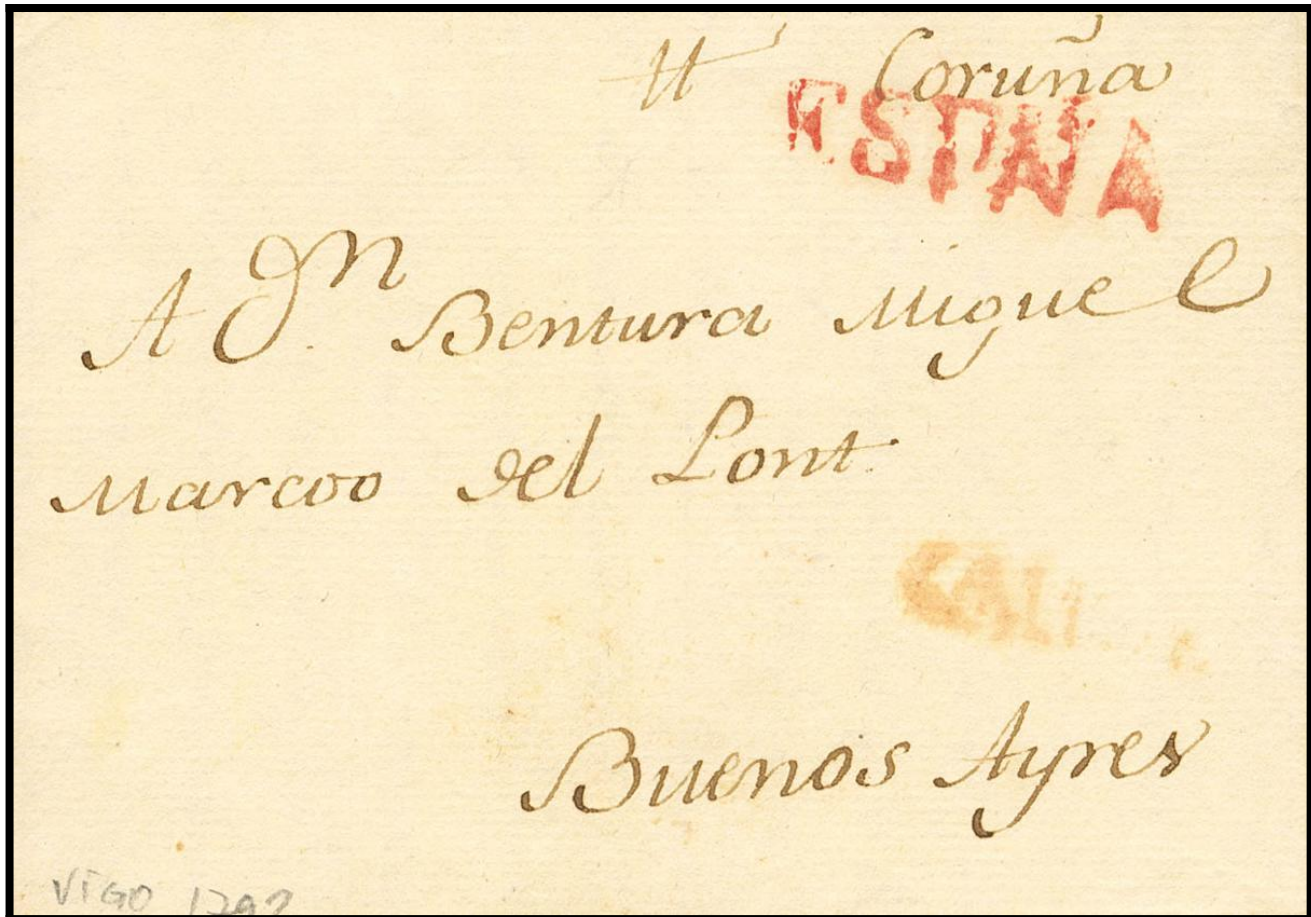 Coruña
ESPNA
A Dn. Bentura Miguel
Marcoo del Pont.
Buenos Ayres
VIGO 1792